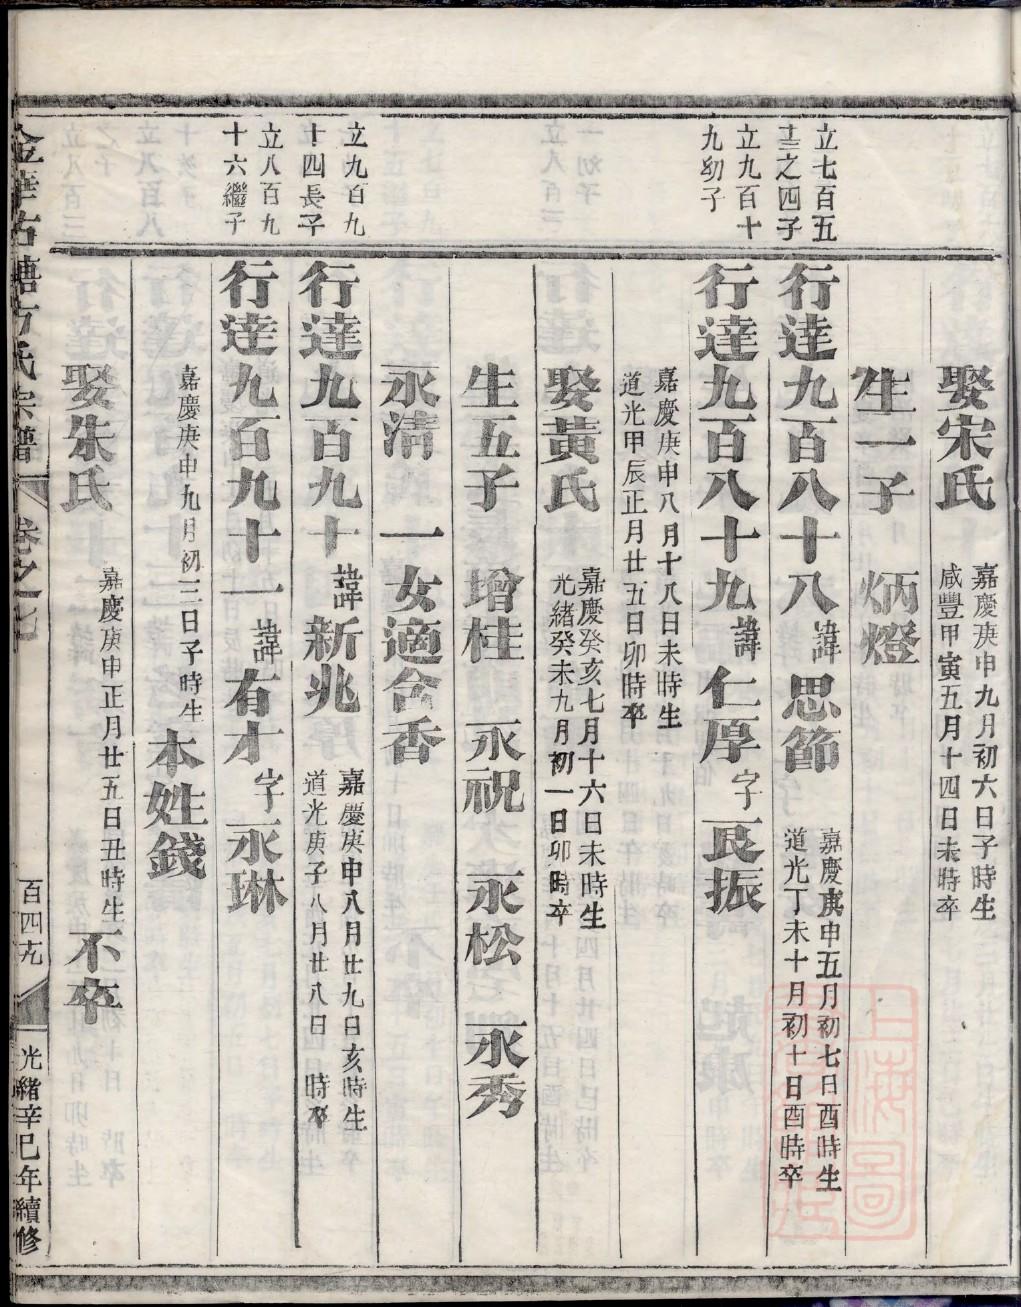 娶宋氏
嘉慶庚申九月初六日子時生
咸豐甲寅五月十四日未時卒
生一子　炳燈
立七百五
十三之四子
行達九百八十八諱思節
嘉慶庚申五月初七日酉時生
道光丁未十月初十日酉時卒
立九百十
九幼子
行達九百八十九諱仁厚字良振
嘉慶庚申八月十八日未時生
道光甲辰正月廿五日卯時卒
娶黃氏
嘉慶癸亥七月十六日未時生
光緒癸未九月初一日卯時卒
生五子　增桂　永祝　永松　永秀
永清　一女適含香
立九百九
十四長子
行達九百九十諱新兆
嘉慶庚申八月廿九日亥時生
道光庚子八月廿八日　時卒
立八百九
十六繼子
行達九百九十一諱有才字永琳
嘉慶庚申九月初三日子時生
本姓錢
娶朱氏
嘉慶庚申正月廿五日丑時生
不卒
金華右塘方氏宗譜
卷之七
百四九
光緒辛巳年續修